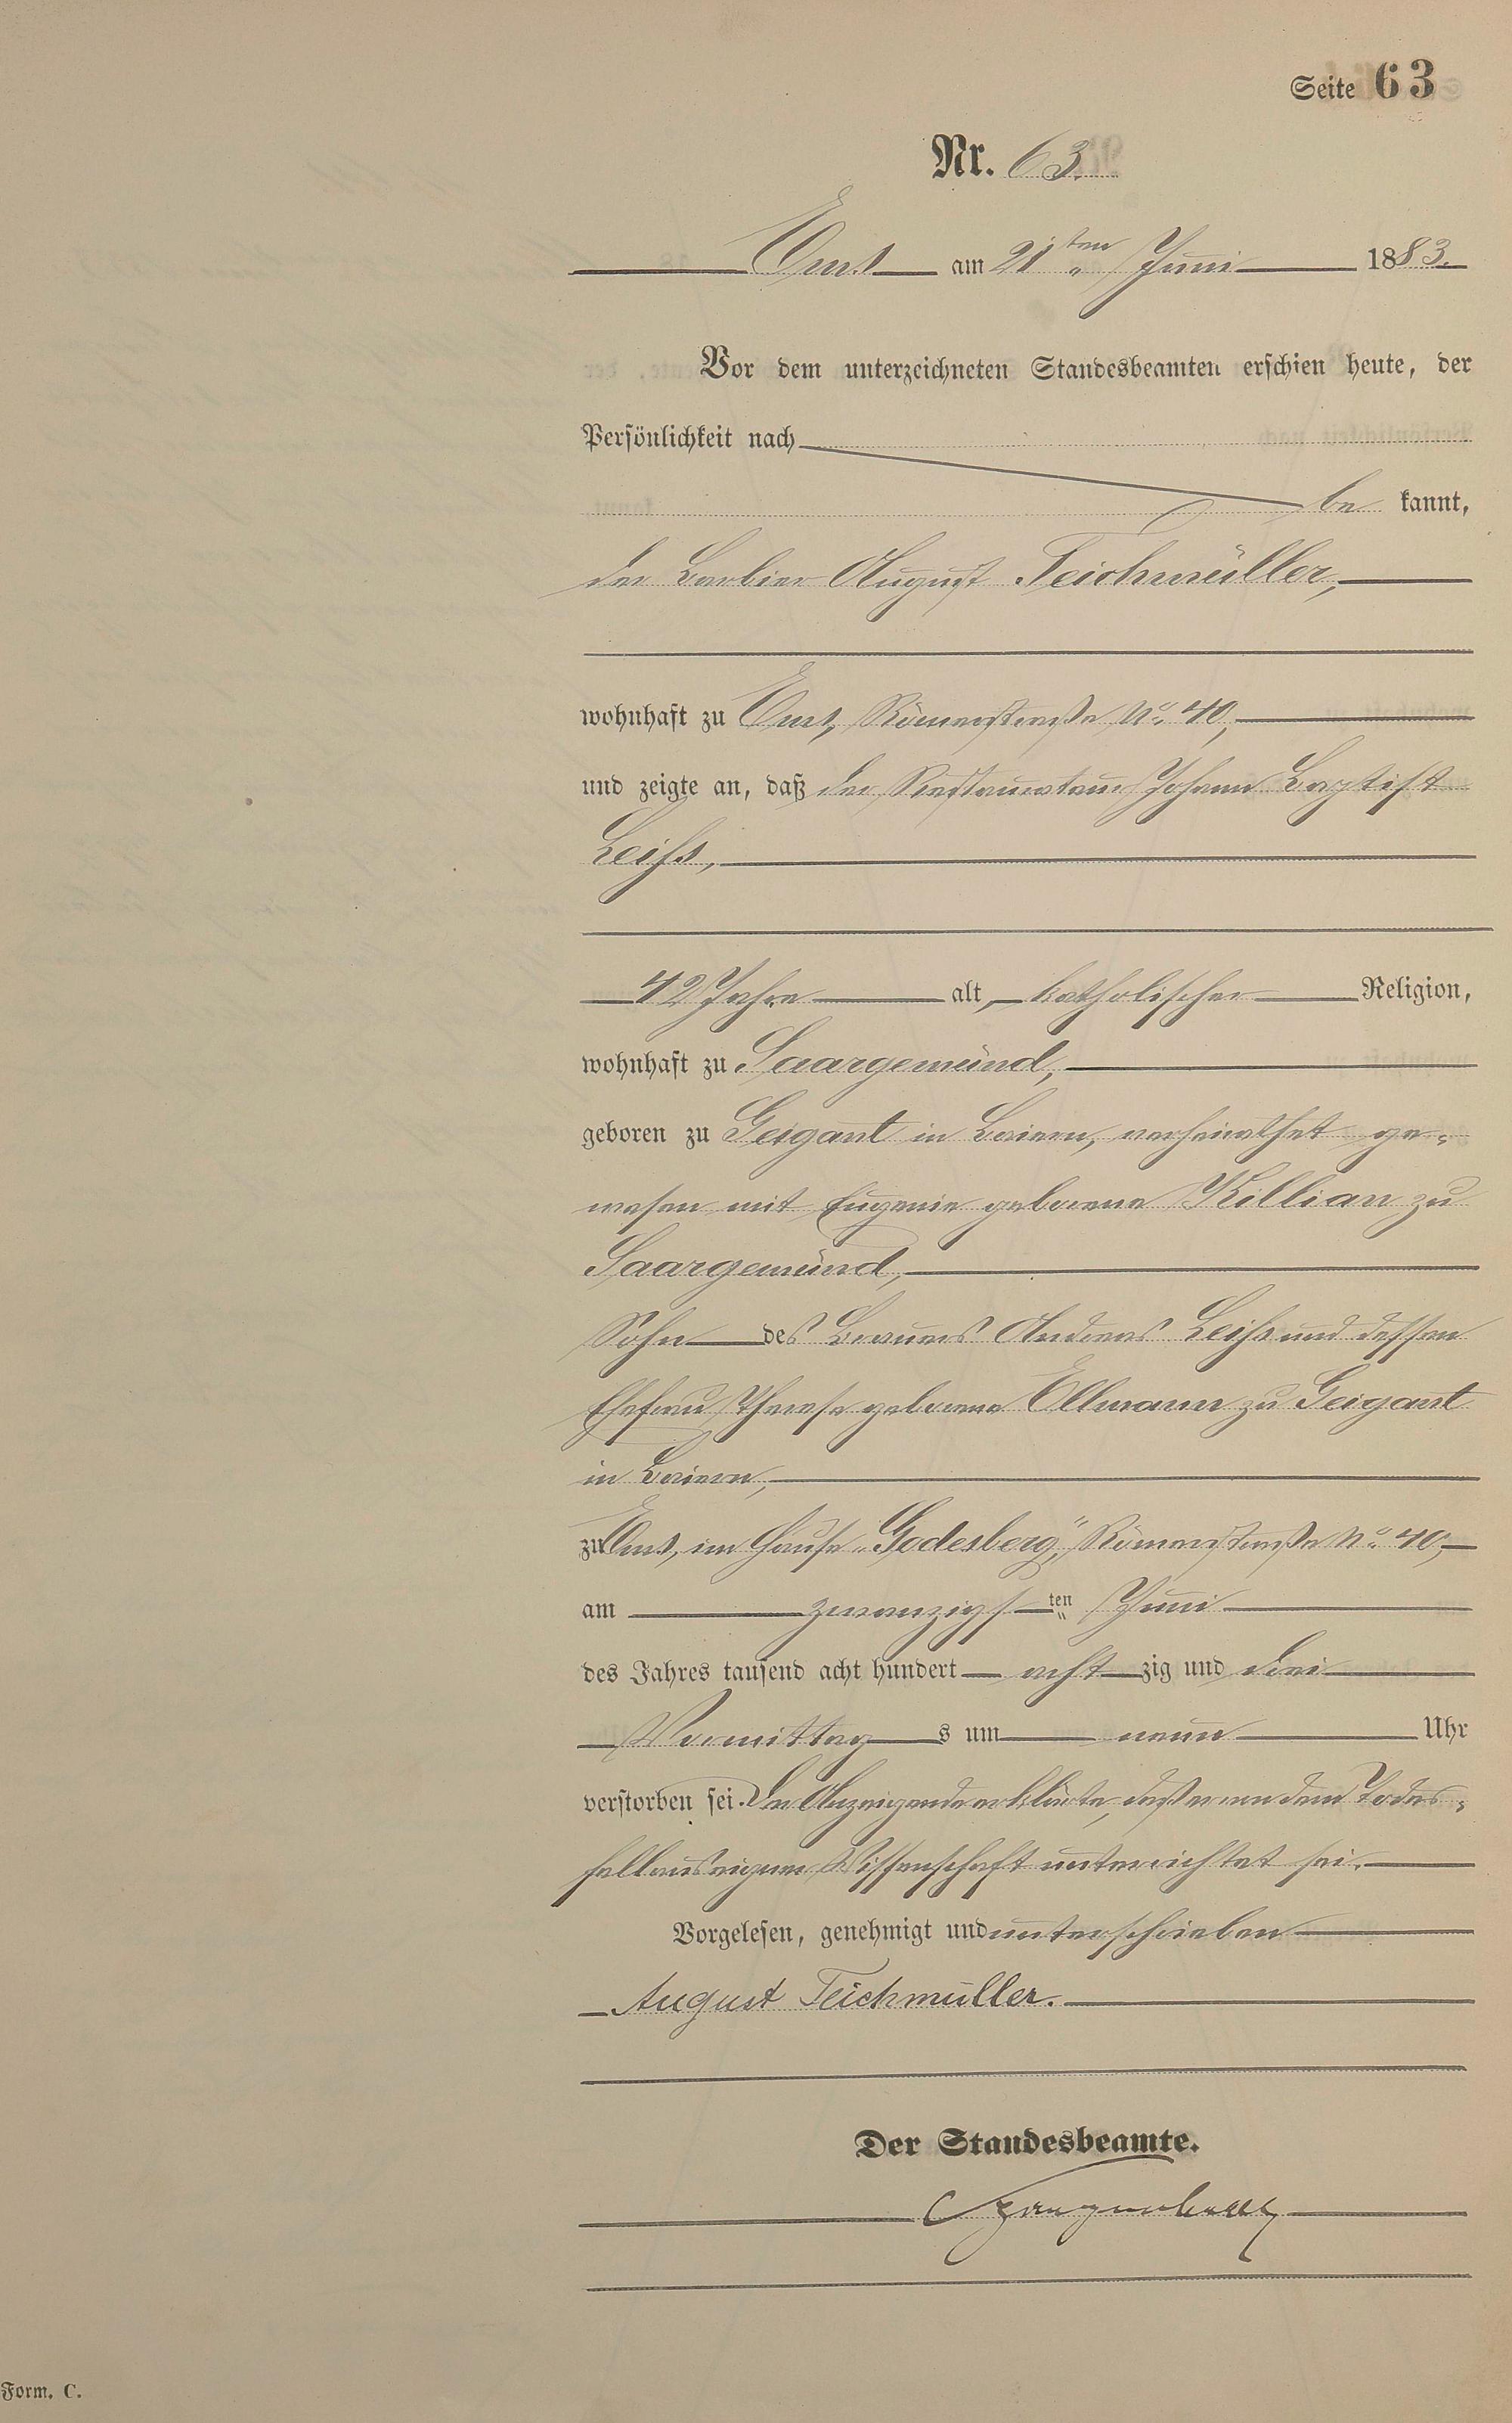 Seite 63
Nr. 63.
Ems am 21ten Juni 1883.
Vor dem unterzeichneten Standesbeamten erschien heute, der
Persönlichkeit nach
be kannt,
der Barbier August Teichmüller,
wohnhaft zu Ems, Römerstraße No. 40,
und zeigte an, daß der Restaurateur Johann Baptist
Leihs,
42 Jahre alt, katholischer Religion,
wohnhaft zu Saargemünd,
geboren zu Geigant in Baiern, verheirathet ge-
wesen mit Eugenie geborene Killian zu
Saargemünd,
Sohn des Brauers Andreas Leihs und dessen
Ehefrau Therese geborene Ellmann zu Geigant
in Baiern,
zu Ems, im Hause „Godesberg", Römerstraße No. 40,
am zwanzigsten Juni
des Jahres tausend acht hundert acht zig und drei
Vormittag s um neun Uhr
verstorben sei. Der Anzeigende erklärte, daß er von dem Todes-
fall aus eigner Wissenschaft unterrichtet sei.
Vorgelesen, genehmigt und unterschrieben
August Teichmüller.
Der Standesbeamte.
Form. C.